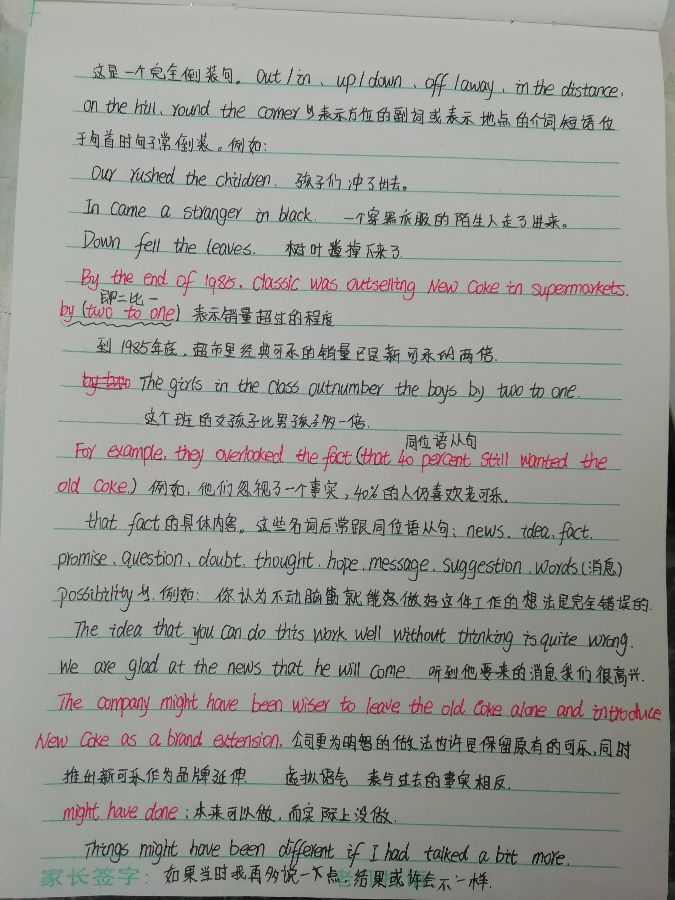 这是一个完全倒装句。out/in、up/down、off/away、in the distance,
on the hill, round the corner 等表示方位的副词或表示地点的介词短语位
于句首时句子常倒装。例如:
Our rushed the children. 孩子们冲了出去。
In came a stranger in black. 一个穿黑衣服的陌生人走了进来。
Down fell the leaves. 树叶掉下来了
By the end of 1985, classic was outselling New Coke in supermarkets.
即二比一
by (two to one) 表示销量超过的程度
到1985年在,超市里经典可乐的销量已是新可乐的两倍.
by two The girls in the class outnumber the boys by two to one.
这个班的女孩子比男孩子多一倍.
同位语从句
For example, they overlooked the fact (that 40 percent still wanted the
old Coke.) 例如,他们忽视了一个事实,40%的人仍喜欢老可乐。
that fact的具体内容。这些名词后常跟同位语从句:news、idea、fact、
promise、question、doubt、thought、hope、message、suggestion、words(消息)
possibility等.例如:你认为不动脑筋就能够做好这件工作的想法是完全错误的.
The idea that you can do this work well without thinking is quite wrong.
we are glad at the news that he will come. 听到他要来的消息我们很高兴.
The company might have been wiser to leave the old Coke alone and introduce
New Coke as a brand extension. 公司更为明智的做法也许是保留原有的可乐,同时
推出新可乐作为品牌延伸. 虚拟语气 表与过去的事实相反.
might have done:本来可以做,而实际上没做.
Things might have been different if I had talked a bit more.
家长签字: 如果当时我再多说一下点,结果或许会不一样.